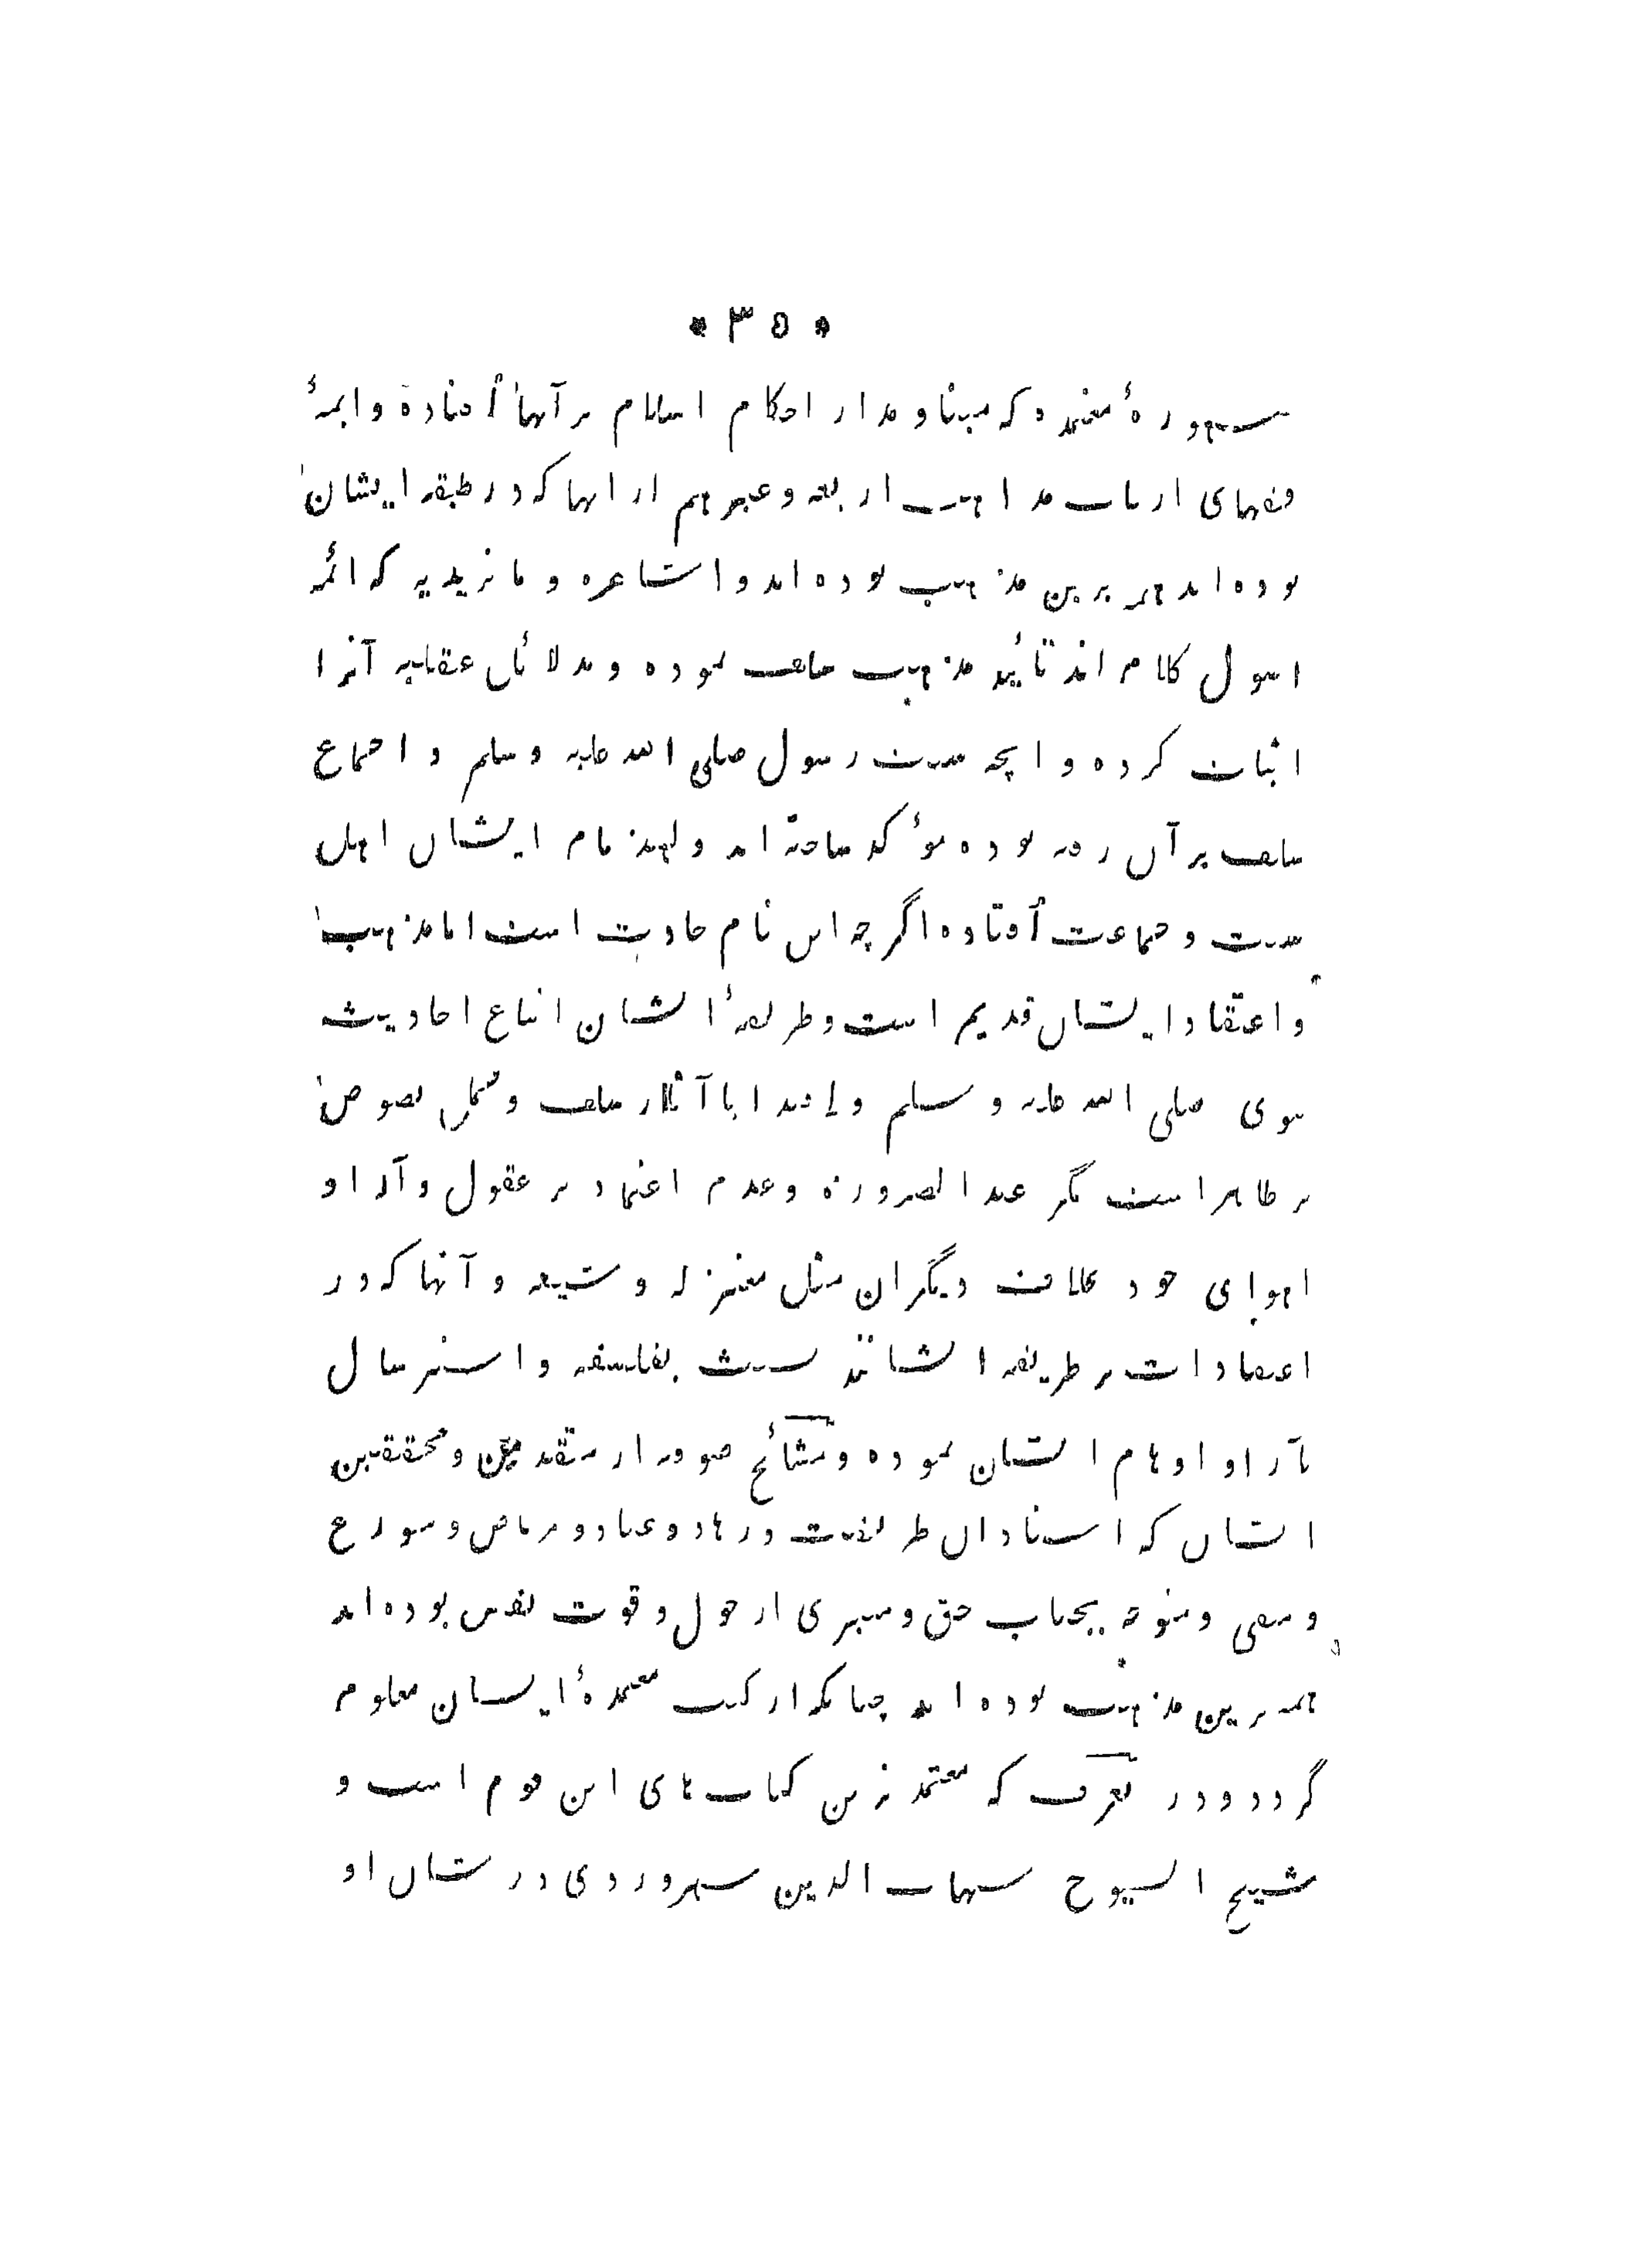 * ۳۵ *
مشهورۀ معتمده که مبنا و مدار احکام اسلام بر آنها افتاده و ایمۀ
فقهای ارباب مذاهب اربعه و غیرهم از انها که در طبقه ایشان
بوده اند همه برین مذهب بوده اند و اشاعره و ماتریدیه که ائمه
اصول کلام اند تائید مذهب سلف نموده و بدلائل عقلیه آنرا
اثبات کرده و انچه سنت رسول صلی الله علیه و سلم و اجماع
سلف بر آن رفته بوده مؤکد ساخته اند و لهذا نام ایشان اهل
سنت و جماعت افتاده اگر چه این نام حادث است اما مذهب
و اعتقاد ایشان قدیم است و طریقۀ ایشان اتباع احادیث
نبوی صلی الله علیه و سلم و اقتدا با آثار سلف و حمل نصوص
بر ظاهر است مگر عند الضرورة و عدم اعتماد بر عقول و آرا و
اهوای خود بخلاف دیگران مثل معتزله و شیعه و آنها که در
اعتقادات بر طریقه ایشانند تشبث بفلاسفه و استرسال
بآرا و اوهام ایشان نموده و مشائخ صوفیه از متقدمین و محققین
ایشان که استادان طریقت و زهاد و عباد و مرتاض و متورع
و متقی و متوجه بجناب حق و متبری از حول و قوت نفس بوده اند
همه برین مذهب بوده اند چنانکه از کتب معتمدۀ ایشان معلوم
گردد و در تعرف که معتمد ترین کتاب های این قوم است و
شیخ الشیوخ شهاب الدین سهروردی در شان او